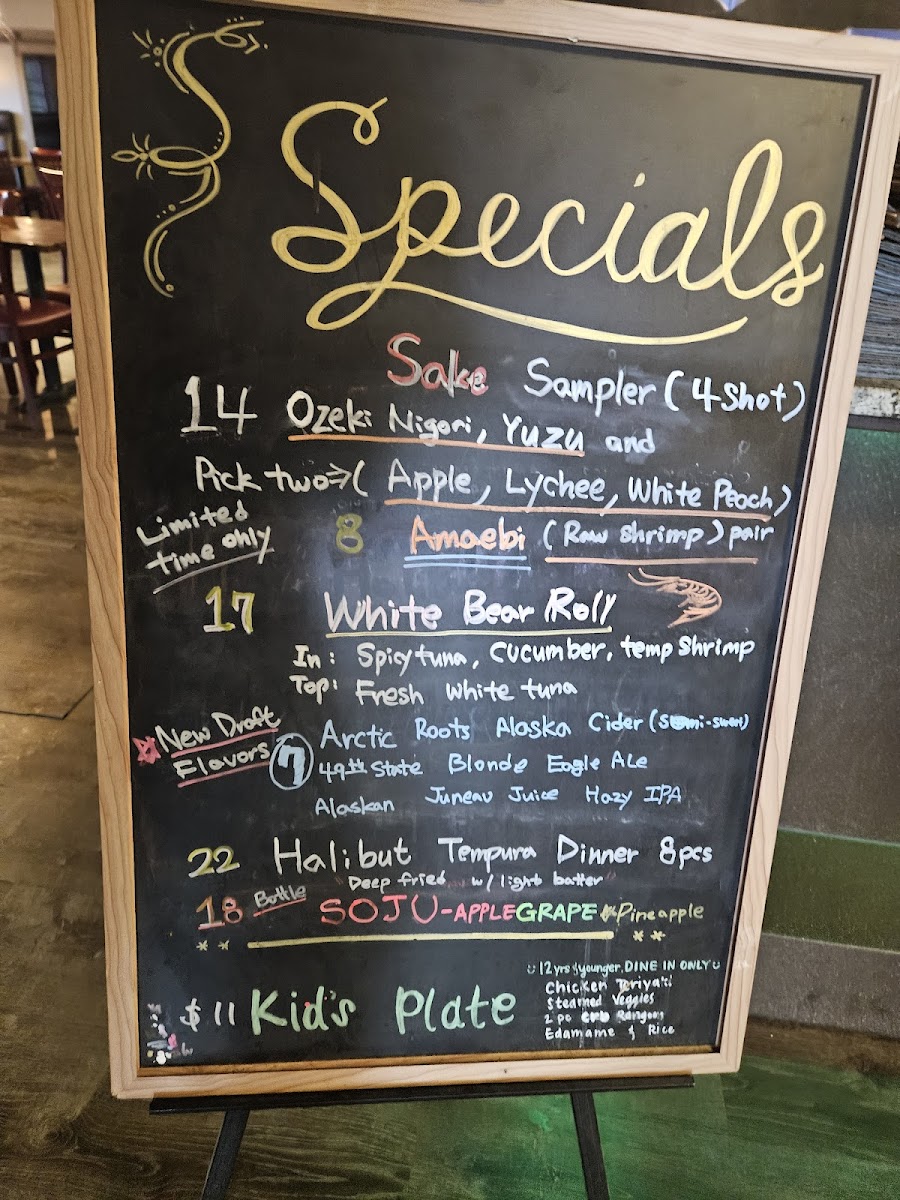 Specials
Sake Sampler (4 Shot)
14 Ozeki Nigori, Yuzu and
Pick two⇒( Apple, Lychee, White Peach)
Limited
time only
8 Amaebi (Raw shrimp) pair
17 White Bear Roll
In: Spicy tuna, Cucumber, temp Shrimp
Top: Fresh White tuna
New Draft
Flavors
7
Arctic Roots Alaska Cider (semi-sweet)
49th State Blonde Eagle Ale
Alaskan Juneau Juice Hazy IPA
22 Halibut Tempura Dinner 8pcs
"Deep fried w/ light batter"
18 Bottle SOJU-APPLE GRAPE Pineapple
12yrs & younger. DINE IN ONLY
$11 Kid's Plate
Chicken Teriyaki
Steamed Veggies
2 pc crb Rangoon
Edamame & Rice